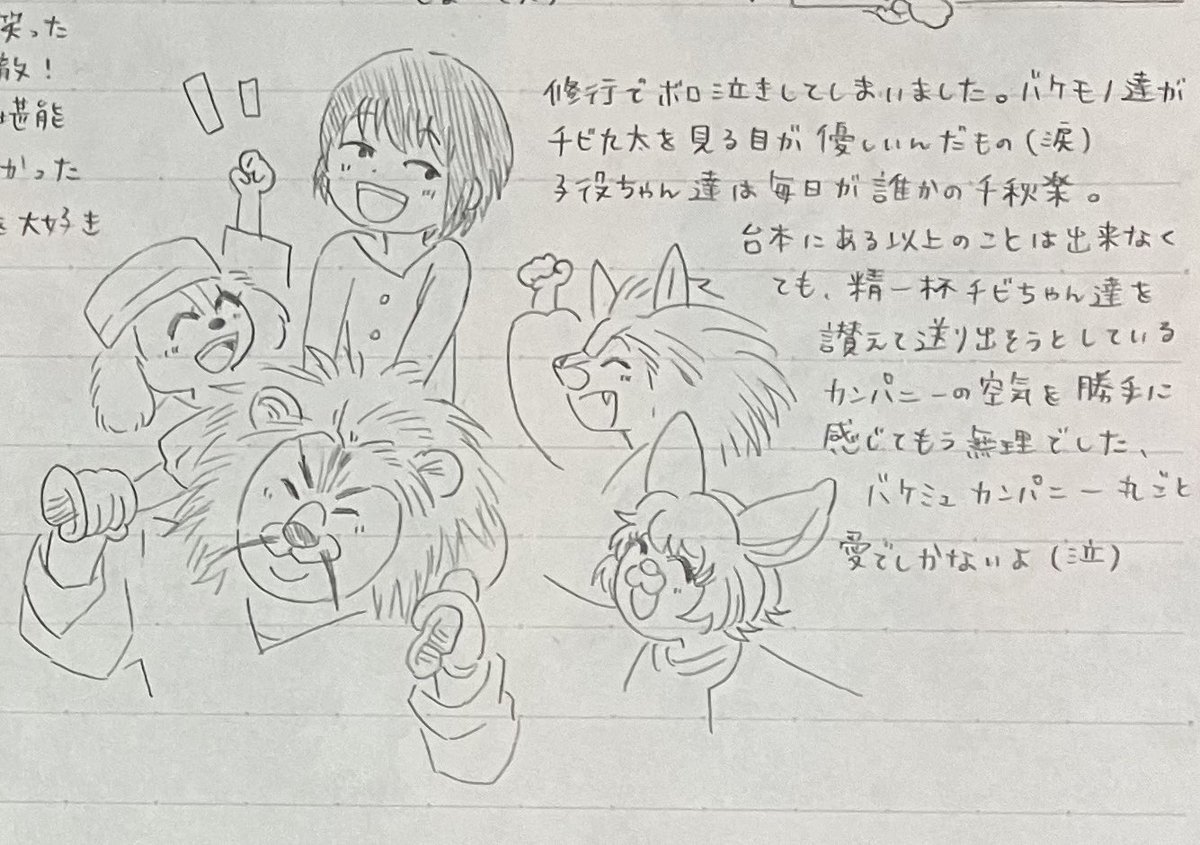 笑った
散！
堪能
かった
大好き
修行でボロ泣きしてしまいました。バケモノ達が
チビ九太を見る目が優しいんだもの(涙)
子役ちゃん達は毎日が誰かの千秋楽。
台本にある以上のことは出来なく
ても、精一杯チビちゃん達を
讃えて送り出そうとしている
カンパニーの空気を勝手に
感じてもう無理でした、
バケミュカンパニー丸ごと
愛でしかないよ(泣)